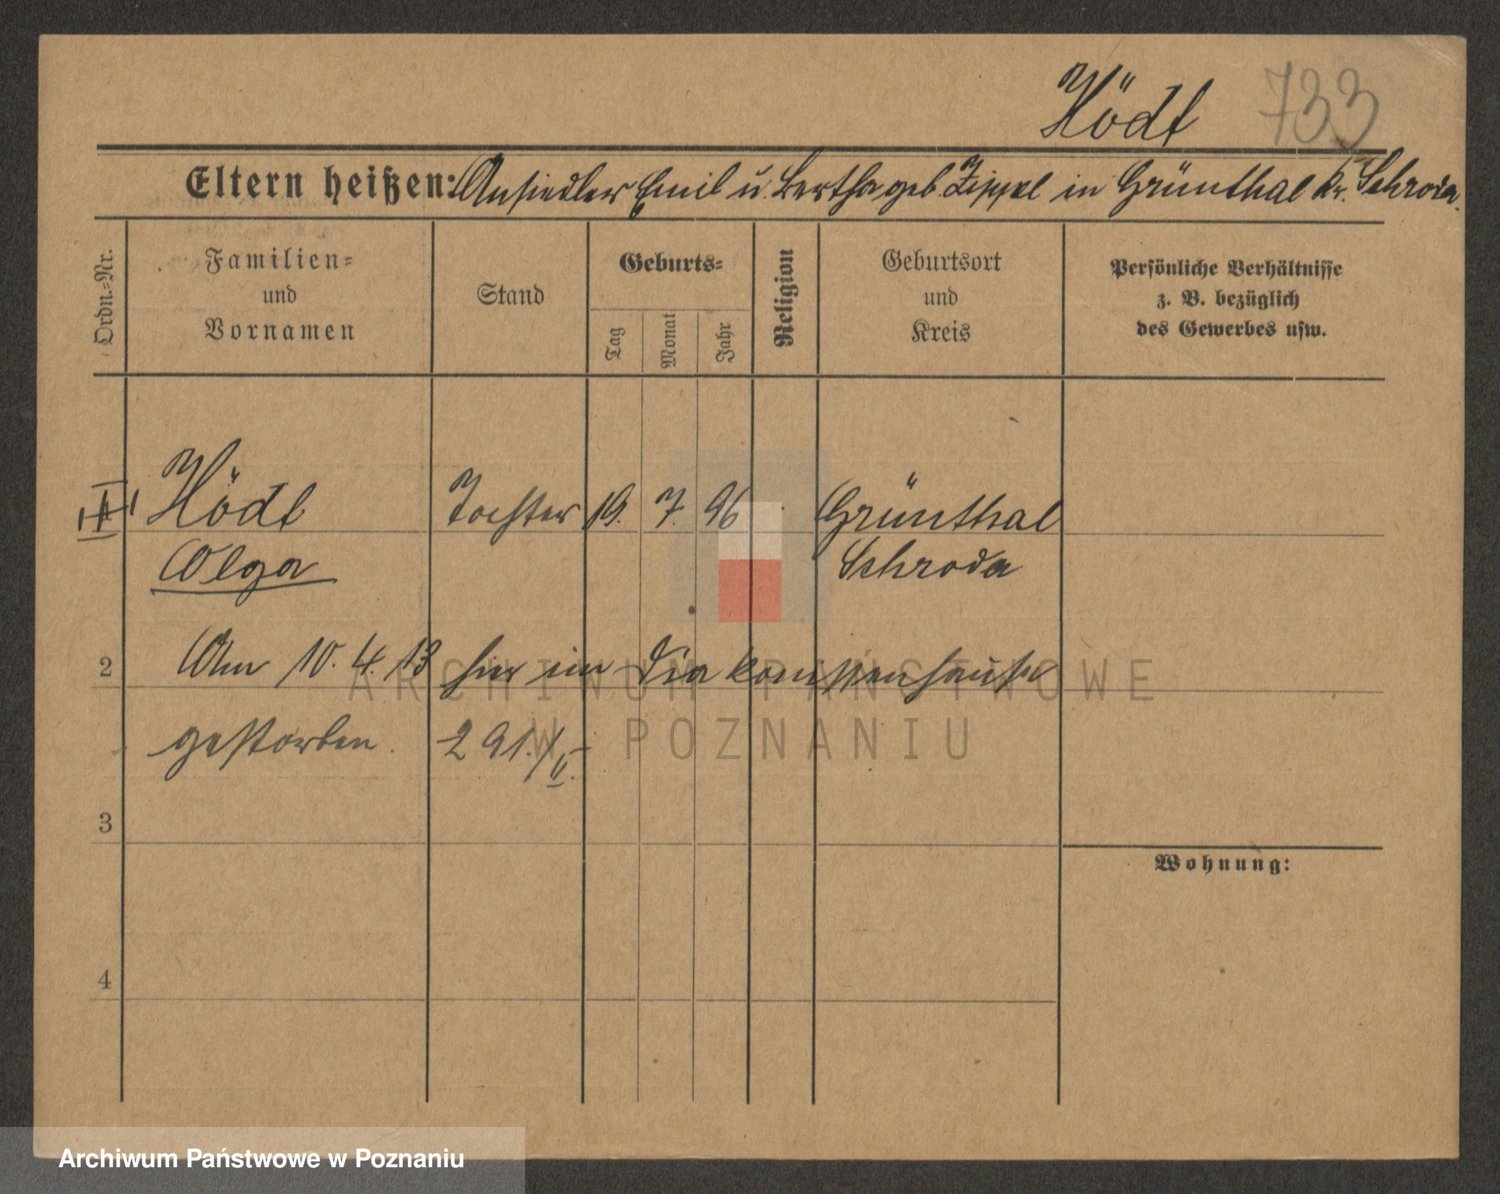 Hödt 733
Eltern heißen: Ansiedler Emil u. Bertha geb. Zippel in Grünthal Kr. Schroda.
Ordn.-Nr.
Familien-
und
Vornamen
Stand
Geburts-
Tag
Monat
Jahr
Religion
Geburtsort
und
Kreis
Persönliche Verhältnisse
z. B. bezüglich
des Gewerbes usw.
Hödt Tochter 19. 7. 96 Grünthal
Olga Schroda
2 Am 10. 4. 13 hier im Diakonissenhause
gestorben. 291./
3
Wohnung:
4
ARCHIWUM PAŃSTWOWE
W POZNANIU
Archiwum Państwowe w Poznaniu